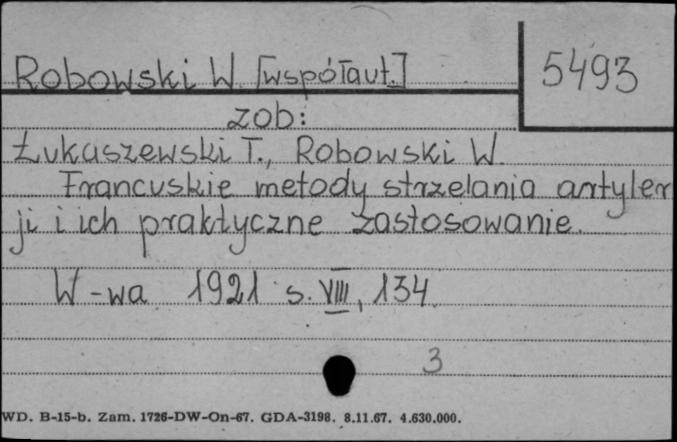 Robowski W. [współaut.]
5493
zob:
Łukaszewski T., Robowski W.
Francuskie metody strzelania artyler
ji i ich praktyczne zastosowanie.
W-wa 1921 s. VIII, 134.
3
WD. B-15-b. Zam. 1726-DW-On-67. GDA-3198. 8.11.67. 4.630.000.